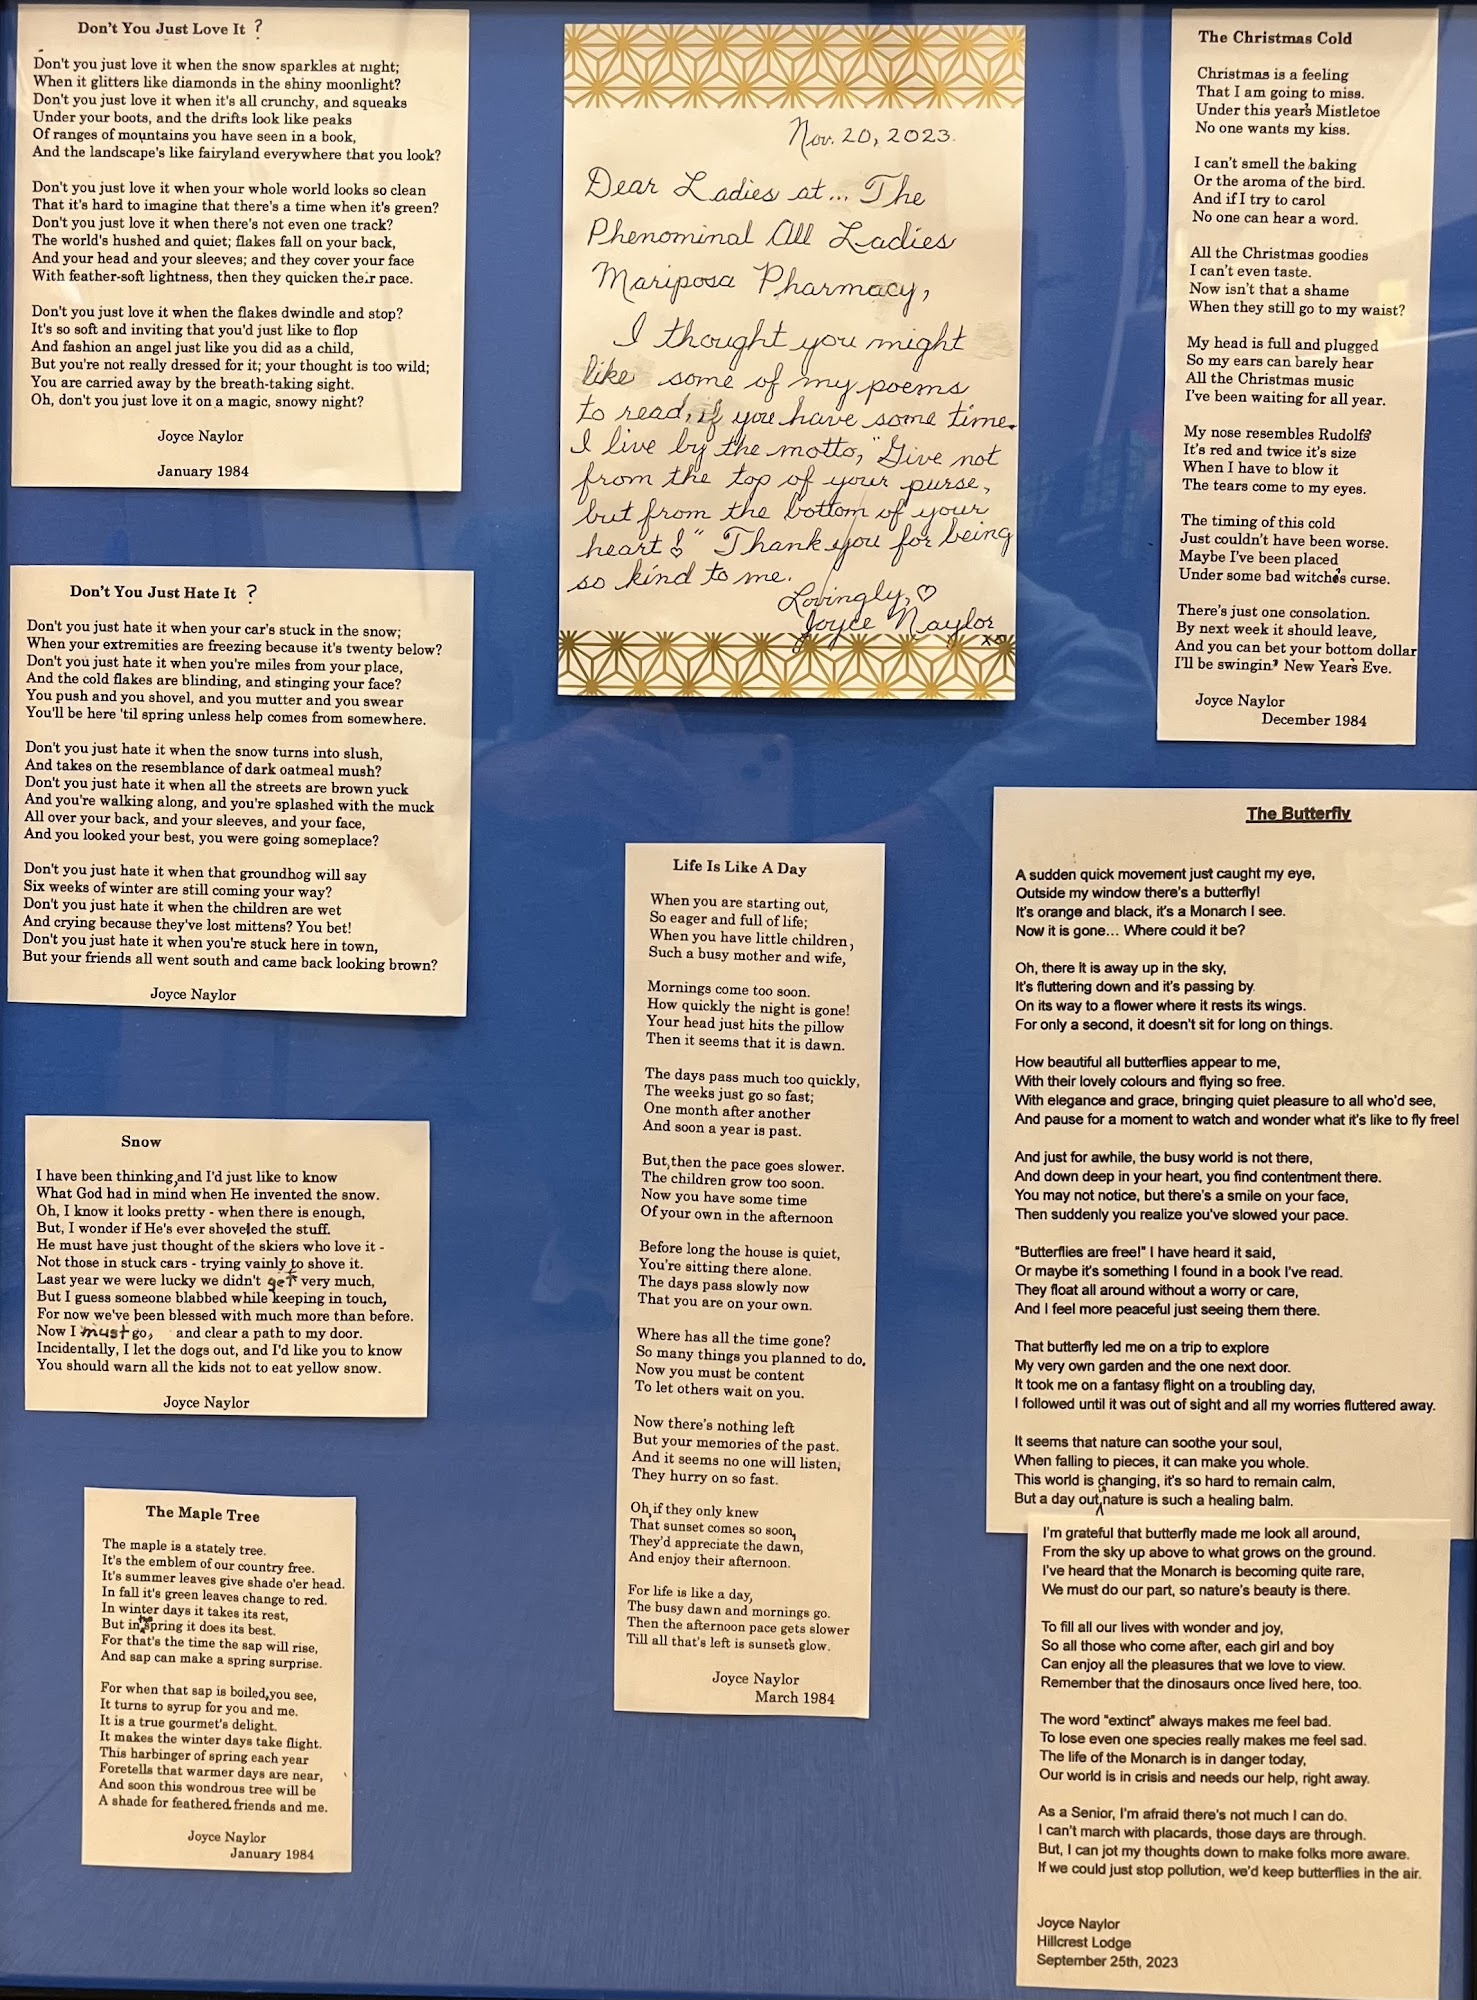 Don't You Just Love It ?
Don't you just love it when the snow sparkles at night;
When it glitters like diamonds in the shiny moonlight?
Don't you just love it when it's all crunchy, and squeaks
Under your boots, and the drifts look like peaks
Of ranges of mountains you have seen in a book,
And the landscape's like fairyland everywhere that you look?
Don't you just love it when your whole world looks so clean
That it's hard to imagine that there's a time when it's green?
Don't you just love it when there's not even one track?
The world's hushed and quiet; flakes fall on your back,
And your head and your sleeves; and they cover your face
With feather-soft lightness, then they quicken their pace.
Don't you just love it when the flakes dwindle and stop?
It's so soft and inviting that you'd just like to flop
And fashion an angel just like you did as a child,
But you're not really dressed for it; your thought is too wild;
You are carried away by the breath-taking sight.
Oh, don't you just love it on a magic, snowy night?
Joyce Naylor
January 1984
Don't You Just Hate It ?
Don't you just hate it when your car's stuck in the snow;
When your extremities are freezing because it's twenty below?
Don't you just hate it when you're miles from your place,
And the cold flakes are blinding, and stinging your face?
You push and you shovel, and you mutter and you swear
You'll be here 'til spring unless help comes from somewhere.
Don't you just hate it when the snow turns into slush,
And takes on the resemblance of dark oatmeal mush?
Don't you just hate it when all the streets are brown yuck
And you're walking along, and you're splashed with the muck
All over your back, and your sleeves, and your face,
And you looked your best, you were going someplace?
Don't you just hate it when that groundhog will say
Six weeks of winter are still coming your way?
Don't you just hate it when the children are wet
And crying because they've lost mittens? You bet!
Don't you just hate it when you're stuck here in town,
But your friends all went south and came back looking brown?
Joyce Naylor
Snow
I have been thinking, and I'd just like to know
What God had in mind when He invented the snow.
Oh, I know it looks pretty - when there is enough,
But, I wonder if He's ever shoveled the stuff.
He must have just thought of the skiers who love it -
Not those in stuck cars - trying vainly to shove it.
Last year we were lucky we didn't get very much,
But I guess someone blabbed while keeping in touch,
For now we've been blessed with much more than before.
Now I must go, and clear a path to my door.
Incidentally, I let the dogs out, and I'd like you to know
You should warn all the kids not to eat yellow snow.
Joyce Naylor
The Maple Tree
The maple is a stately tree.
It's the emblem of our country free.
It's summer leaves give shade o'er head.
In fall it's green leaves change to red.
In winter days it takes its rest,
But in the spring it does its best.
For that's the time the sap will rise,
And sap can make a spring surprise.
For when that sap is boiled, you see,
It turns to syrup for you and me.
It is a true gourmet's delight.
It makes the winter days take flight.
This harbinger of spring each year
Foretells that warmer days are near,
And soon this wondrous tree will be
A shade for feathered friends and me.
Joyce Naylor
January 1984
Nov. 20, 2023.
Dear Ladies at... The
Phenominal All Ladies
Mariposa Pharmacy,
I thought you might
like some of my poems
to read, if you have some time.
I live by the motto, "Give not
from the top of your purse,
but from the bottom of your
heart!" Thank you for being
so kind to me.
Lovingly, ♡
Joyce Naylor
xo
Life Is Like A Day
When you are starting out,
So eager and full of life;
When you have little children,
Such a busy mother and wife,
Mornings come too soon.
How quickly the night is gone!
Your head just hits the pillow
Then it seems that it is dawn.
The days pass much too quickly,
The weeks just go so fast;
One month after another
And soon a year is past.
But, then the pace goes slower.
The children grow too soon.
Now you have some time
Of your own in the afternoon
Before long the house is quiet,
You're sitting there alone.
The days pass slowly now
That you are on your own.
Where has all the time gone?
So many things you planned to do.
Now you must be content
To let others wait on you.
Now there's nothing left
But your memories of the past.
And it seems no one will listen,
They hurry on so fast.
Oh, if they only knew
That sunset comes so soon,
They'd appreciate the dawn,
And enjoy their afternoon.
For life is like a day,
The busy dawn and mornings go.
Then the afternoon pace gets slower
Till all that's left is sunset's glow.
Joyce Naylor
March 1984
The Christmas Cold
Christmas is a feeling
That I am going to miss.
Under this year's Mistletoe
No one wants my kiss.
I can't smell the baking
Or the aroma of the bird.
And if I try to carol
No one can hear a word.
All the Christmas goodies
I can't even taste.
Now isn't that a shame
When they still go to my waist?
My head is full and plugged
So my ears can barely hear
All the Christmas music
I've been waiting for all year.
My nose resembles Rudolf's
It's red and twice it's size
When I have to blow it
The tears come to my eyes.
The timing of this cold
Just couldn't have been worse.
Maybe I've been placed
Under some bad witch's curse.
There's just one consolation.
By next week it should leave,
And you can bet your bottom dollar
I'll be swingin' New Year's Eve.
Joyce Naylor
December 1984
The Butterfly
A sudden quick movement just caught my eye,
Outside my window there's a butterfly!
It's orange and black, it's a Monarch I see.
Now it is gone... Where could it be?
Oh, there it is away up in the sky,
It's fluttering down and it's passing by.
On its way to a flower where it rests its wings.
For only a second, it doesn't sit for long on things.
How beautiful all butterflies appear to me,
With their lovely colours and flying so free.
With elegance and grace, bringing quiet pleasure to all who'd see,
And pause for a moment to watch and wonder what it's like to fly free!
And just for awhile, the busy world is not there,
And down deep in your heart, you find contentment there.
You may not notice, but there's a smile on your face,
Then suddenly you realize you've slowed your pace.
"Butterflies are free!" I have heard it said,
Or maybe it's something I found in a book I've read.
They float all around without a worry or care,
And I feel more peaceful just seeing them there.
That butterfly led me on a trip to explore
My very own garden and the one next door.
It took me on a fantasy flight on a troubling day,
I followed until it was out of sight and all my worries fluttered away.
It seems that nature can soothe your soul,
When falling to pieces, it can make you whole.
This world is changing, it's so hard to remain calm,
But a day out in nature is such a healing balm.
I'm grateful that butterfly made me look all around,
From the sky up above to what grows on the ground.
I've heard that the Monarch is becoming quite rare,
We must do our part, so nature's beauty is there.
To fill all our lives with wonder and joy,
So all those who come after, each girl and boy
Can enjoy all the pleasures that we love to view.
Remember that the dinosaurs once lived here, too.
The word "extinct" always makes me feel bad.
To lose even one species really makes me feel sad.
The life of the Monarch is in danger today,
Our world is in crisis and needs our help, right away.
As a Senior, I'm afraid there's not much I can do.
I can't march with placards, those days are through.
But, I can jot my thoughts down to make folks more aware.
If we could just stop pollution, we'd keep butterflies in the air.
Joyce Naylor
Hillcrest Lodge
September 25th, 2023